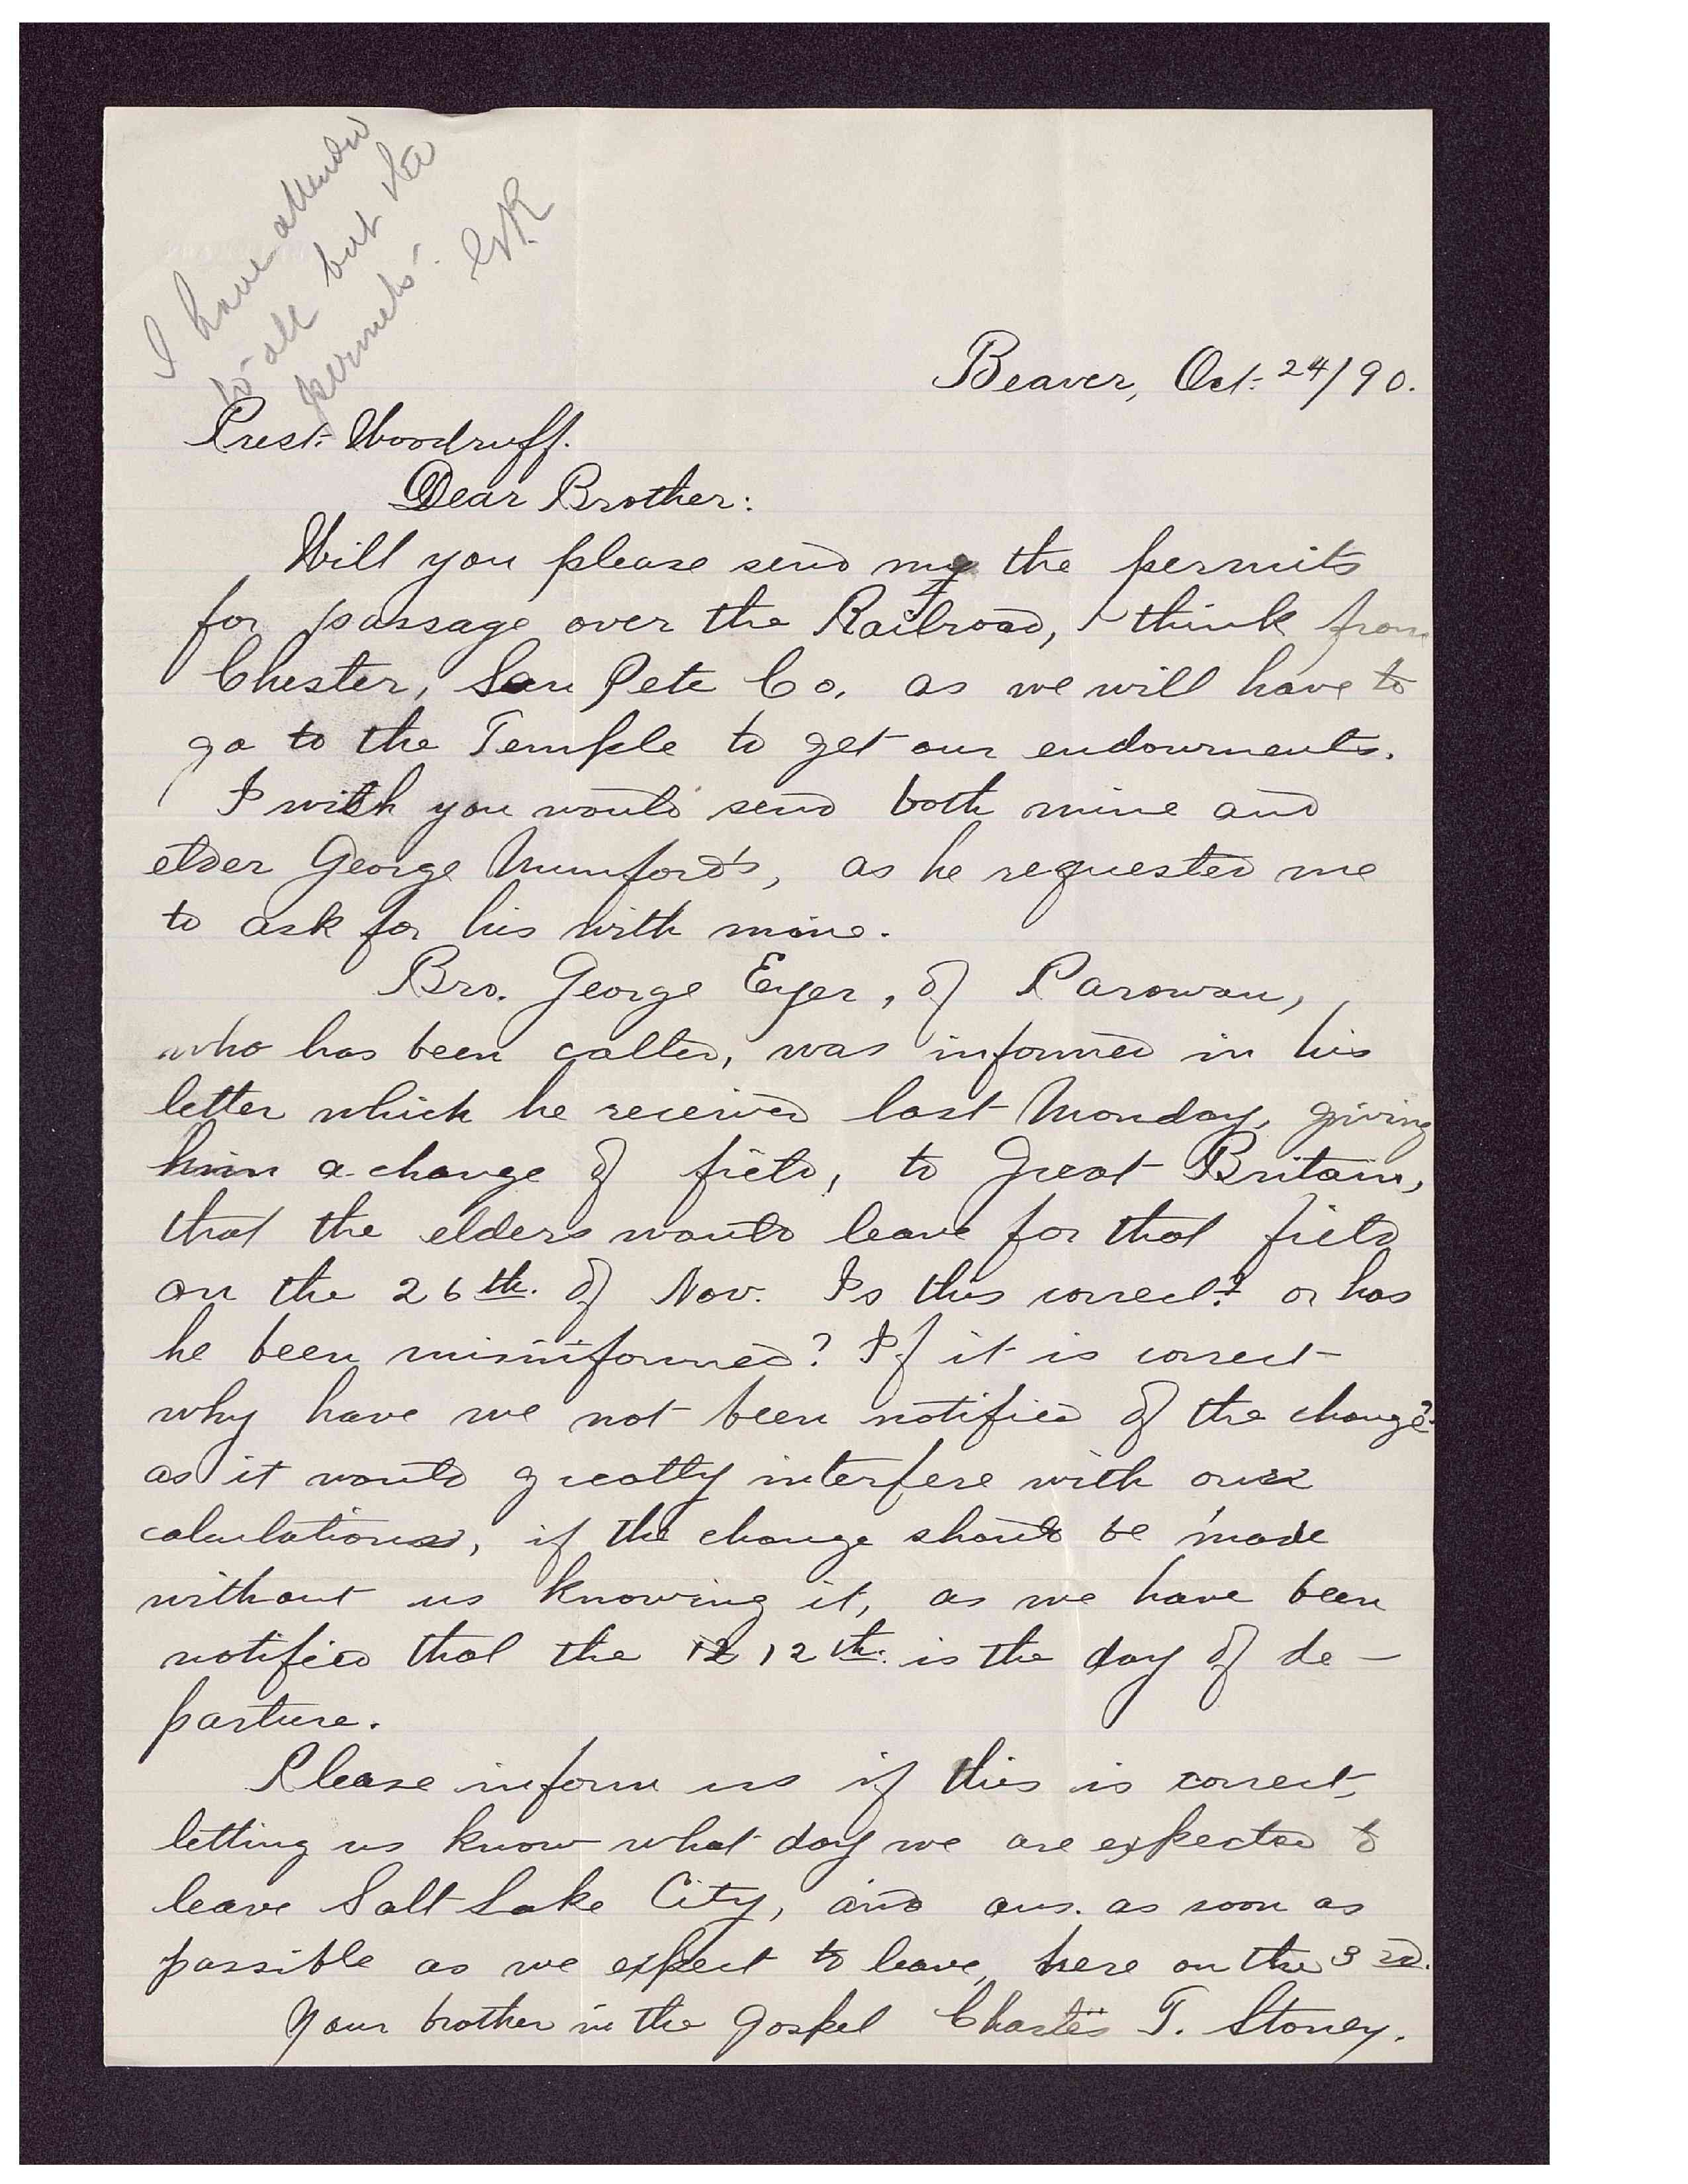 I have attended
to all but the
permits. GR
Beaver, Oct. 24/90.
Prest. Woodruff.
Dear Brother:
Will you please send my the permits
for passage over the Railroad, I think from
Chester, San Pete Co. as we will have to
go to the Temple to get our endowments.
I wish you would send both mine and
elder George Mumford's, as he requested me
to ask for his with mine.
Bro. George Eyer, of Parowan,
who has been called, was informed in his
letter which he received last Monday, giving
him a change of field, to Great Britain,
that the elders would leave for that field
on the 26th. of Nov. Is this correct? or has
he been misinformed? If it is correct
why have we not been notified of the change?
as it would greatly interfere with our
calculations, if the change should be made
without us knowing it, as we have been
notified that the 12 12th. is the day of de-
parture.
Please inform us if this is correct,
letting us know what day we are expected to
leave Salt Lake City, and ans. as soon as
possible as we expect to leave, here on the 3rd.
Your brother in the gospel Charles T. Stoney.